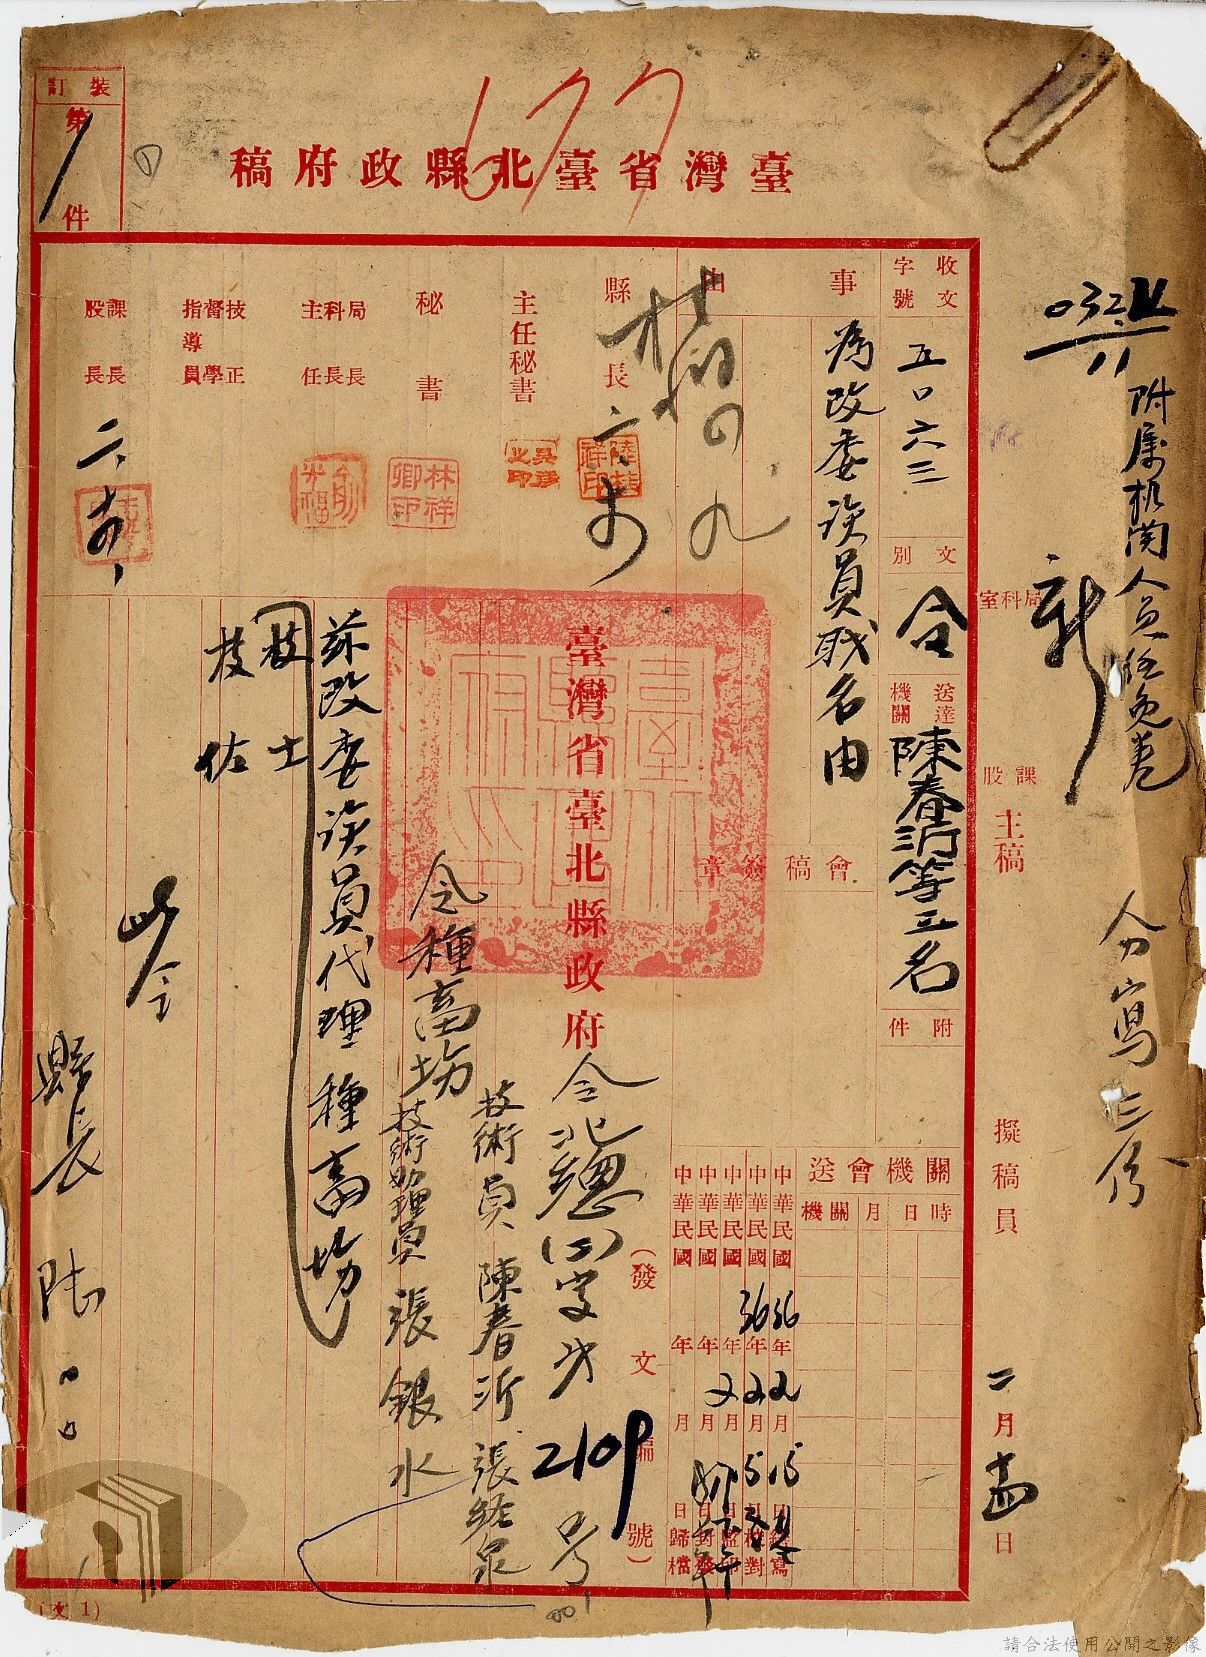 裝訂
第
1
件
677
臺灣省臺北縣政府稿
032
11
附属机関人員任免卷
分寫三份
收文
字號
五〇六三
文別
令
送達機關
陳春沂等三名
附件
局科室
課股
主稿
擬稿員
二月十四日
事由
為改委該員職名由
會稿簽章
縣長
主任秘書
秘書
局長科長主任
技正督學指導員
課長股長
林祥卿印
關機會送
時日月關機
中華民國36年2月15日繕寫
中華民國36年2月15日校對
中華民國 年2月 日監印
中華民國 年 月 日封發
中華民國 年 月 日歸檔
臺灣省臺北縣政府
令北總(二)字第2109号
(發文編號)
令種畜場
技術員陳春沂 張經泉
技術助理員 張銀水
茲改委該員代理種畜場
技士
技佐
此令
縣長 陸
(文1)
請合法使用公開之影像